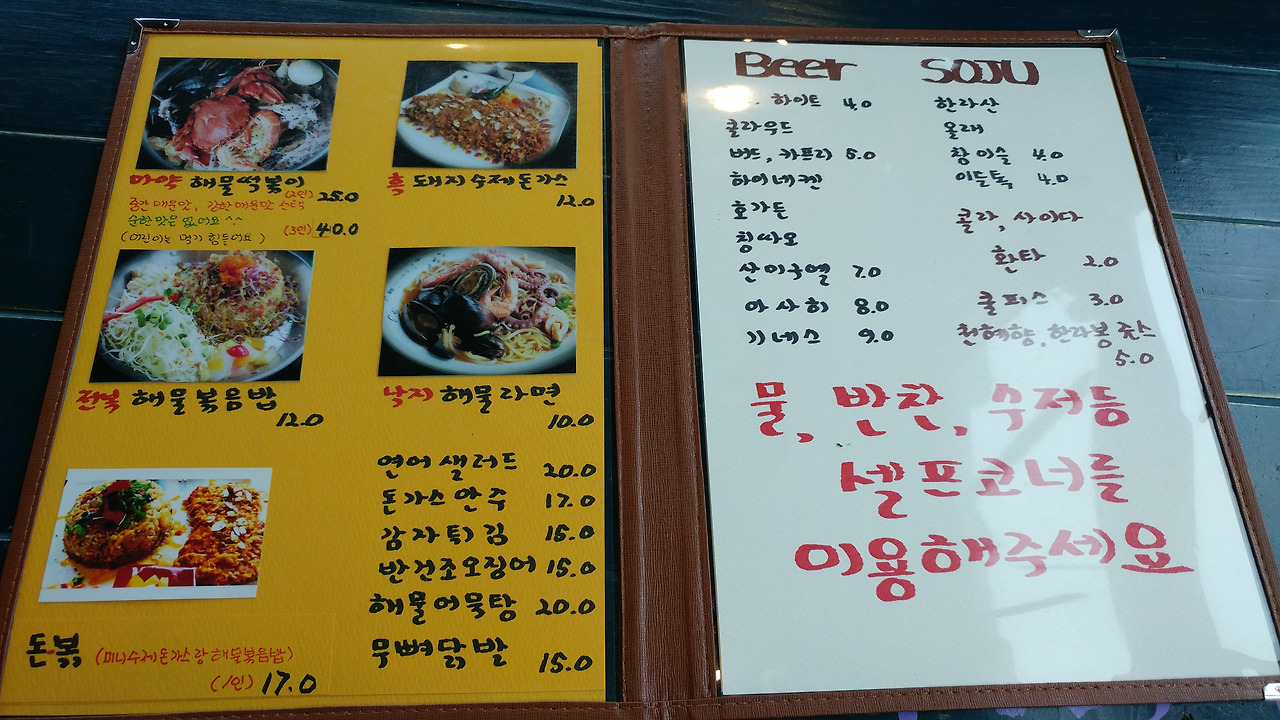 마약 해물떡볶이
(2인) 25.0
중간 매운맛, 강한 매운맛 선택
순한 맛은 없어요 ^^
(어린이는 먹기 힘들어요)
(3인) 40.0
흑 돼지 수제 돈가스
12.0
전복 해물볶음밥
12.0
낙지 해물라면
10.0
연어 샐러드 20.0
돈가스 안주 17.0
감자튀김 15.0
반건조오징어 15.0
해물어묵탕 20.0
무뼈닭발 15.0
돈볶 (미니수제돈가스랑 해물볶음밥)
(1인) 17.0
Beer
하이트 4.0
클라우드
버드, 카프리 5.0
하이네켄
호가든
칭따오
산미구엘 7.0
아사히 8.0
기네스 9.0
SOJU
한라산
올래
참이슬 4.0
이슬톡톡 4.0
콜라, 사이다
환타 2.0
쿨피스 3.0
천혜향, 한라봉 쥬스
5.0
물, 반찬, 수저등
셀프코너를
이용해주세요